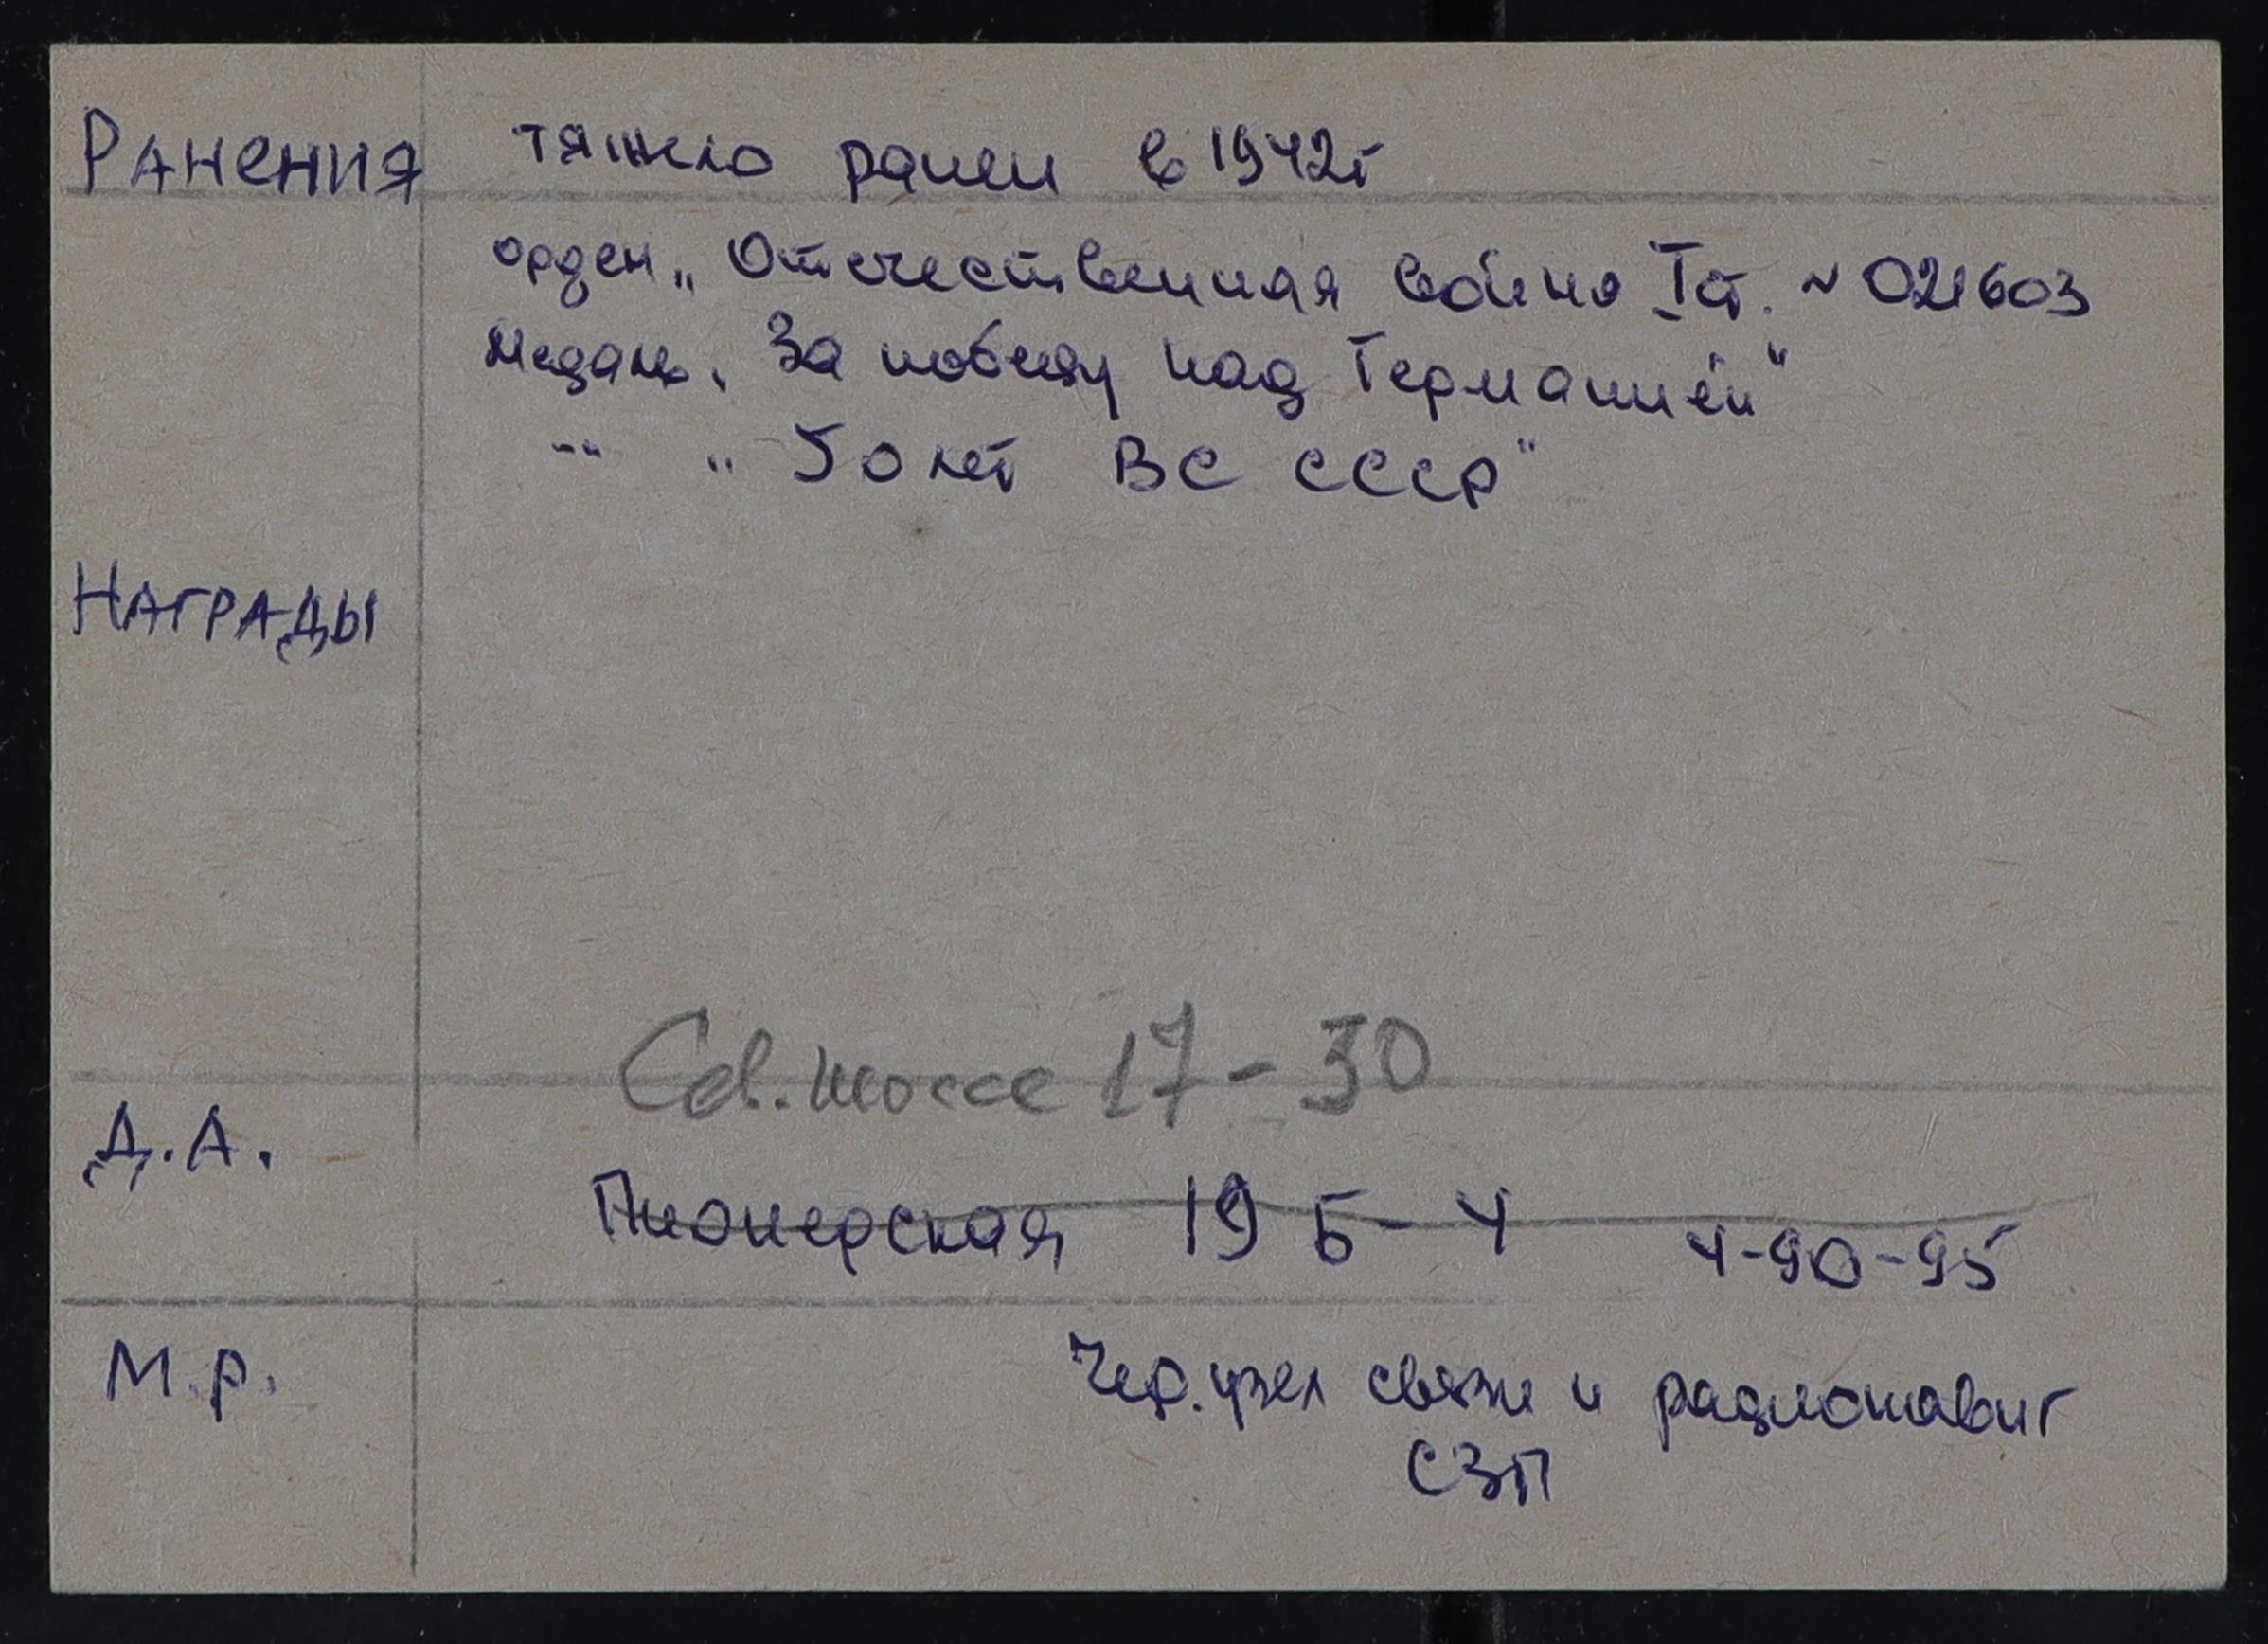 Ранения тяжело ранен в 1942г
орден „Отечественная война I ст. № 021603
медаль „За победу над Германией"
-"- „50 лет ВС СССР"
Награды
Сев. шоссе 17-30
Д.А.
Пионерская 19 Б-4 4-90-95
М.р. Чер. узел связи и радионавиг
СЗП